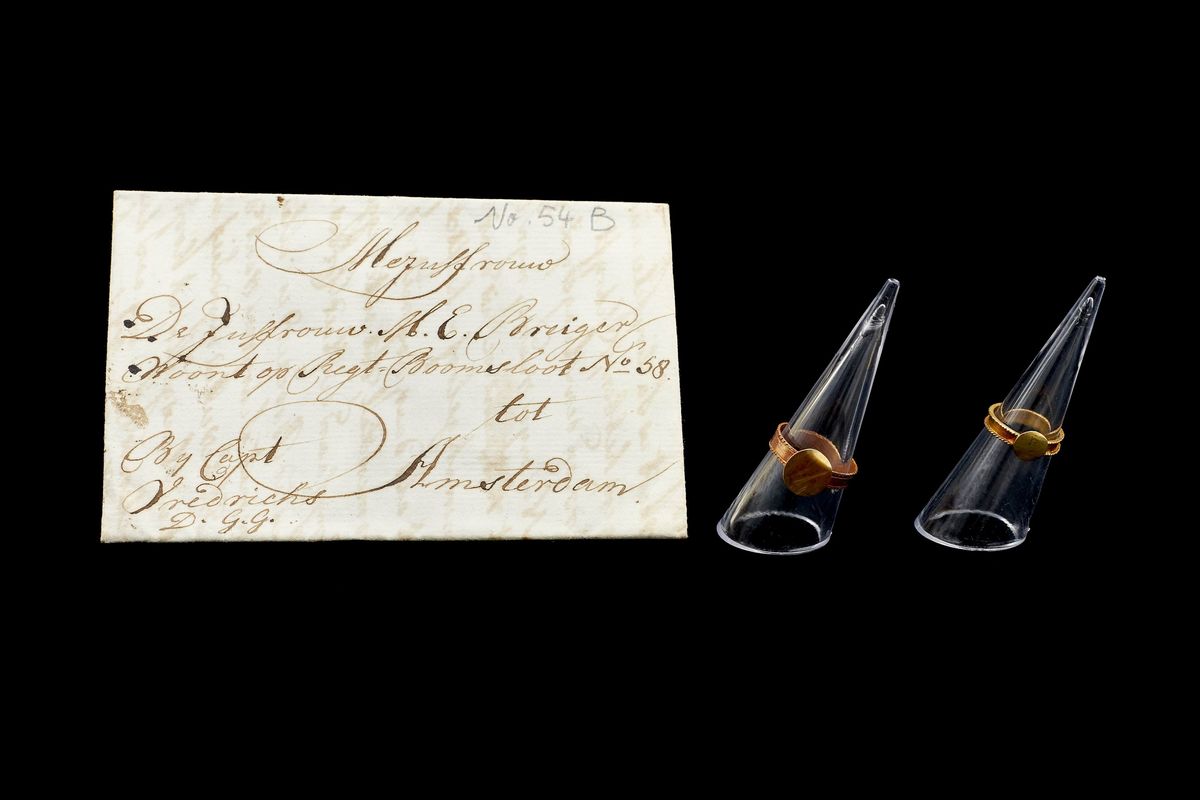 No. 54 B
Mejuffrouw
De Juffrouw. M. E. Breiger
Woont op Regt-Boomsloot No 58.
tot
Amsterdam.
By Capt
Fredrichs
D. G. G.